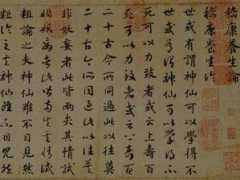 嵇康養生論
世或有謂神仙可以學得不
死可以力致者或云上壽百
二十古今所同過此以往莫
非妖妄者此皆兩失其情試
粗論之夫神仙雖不目見然